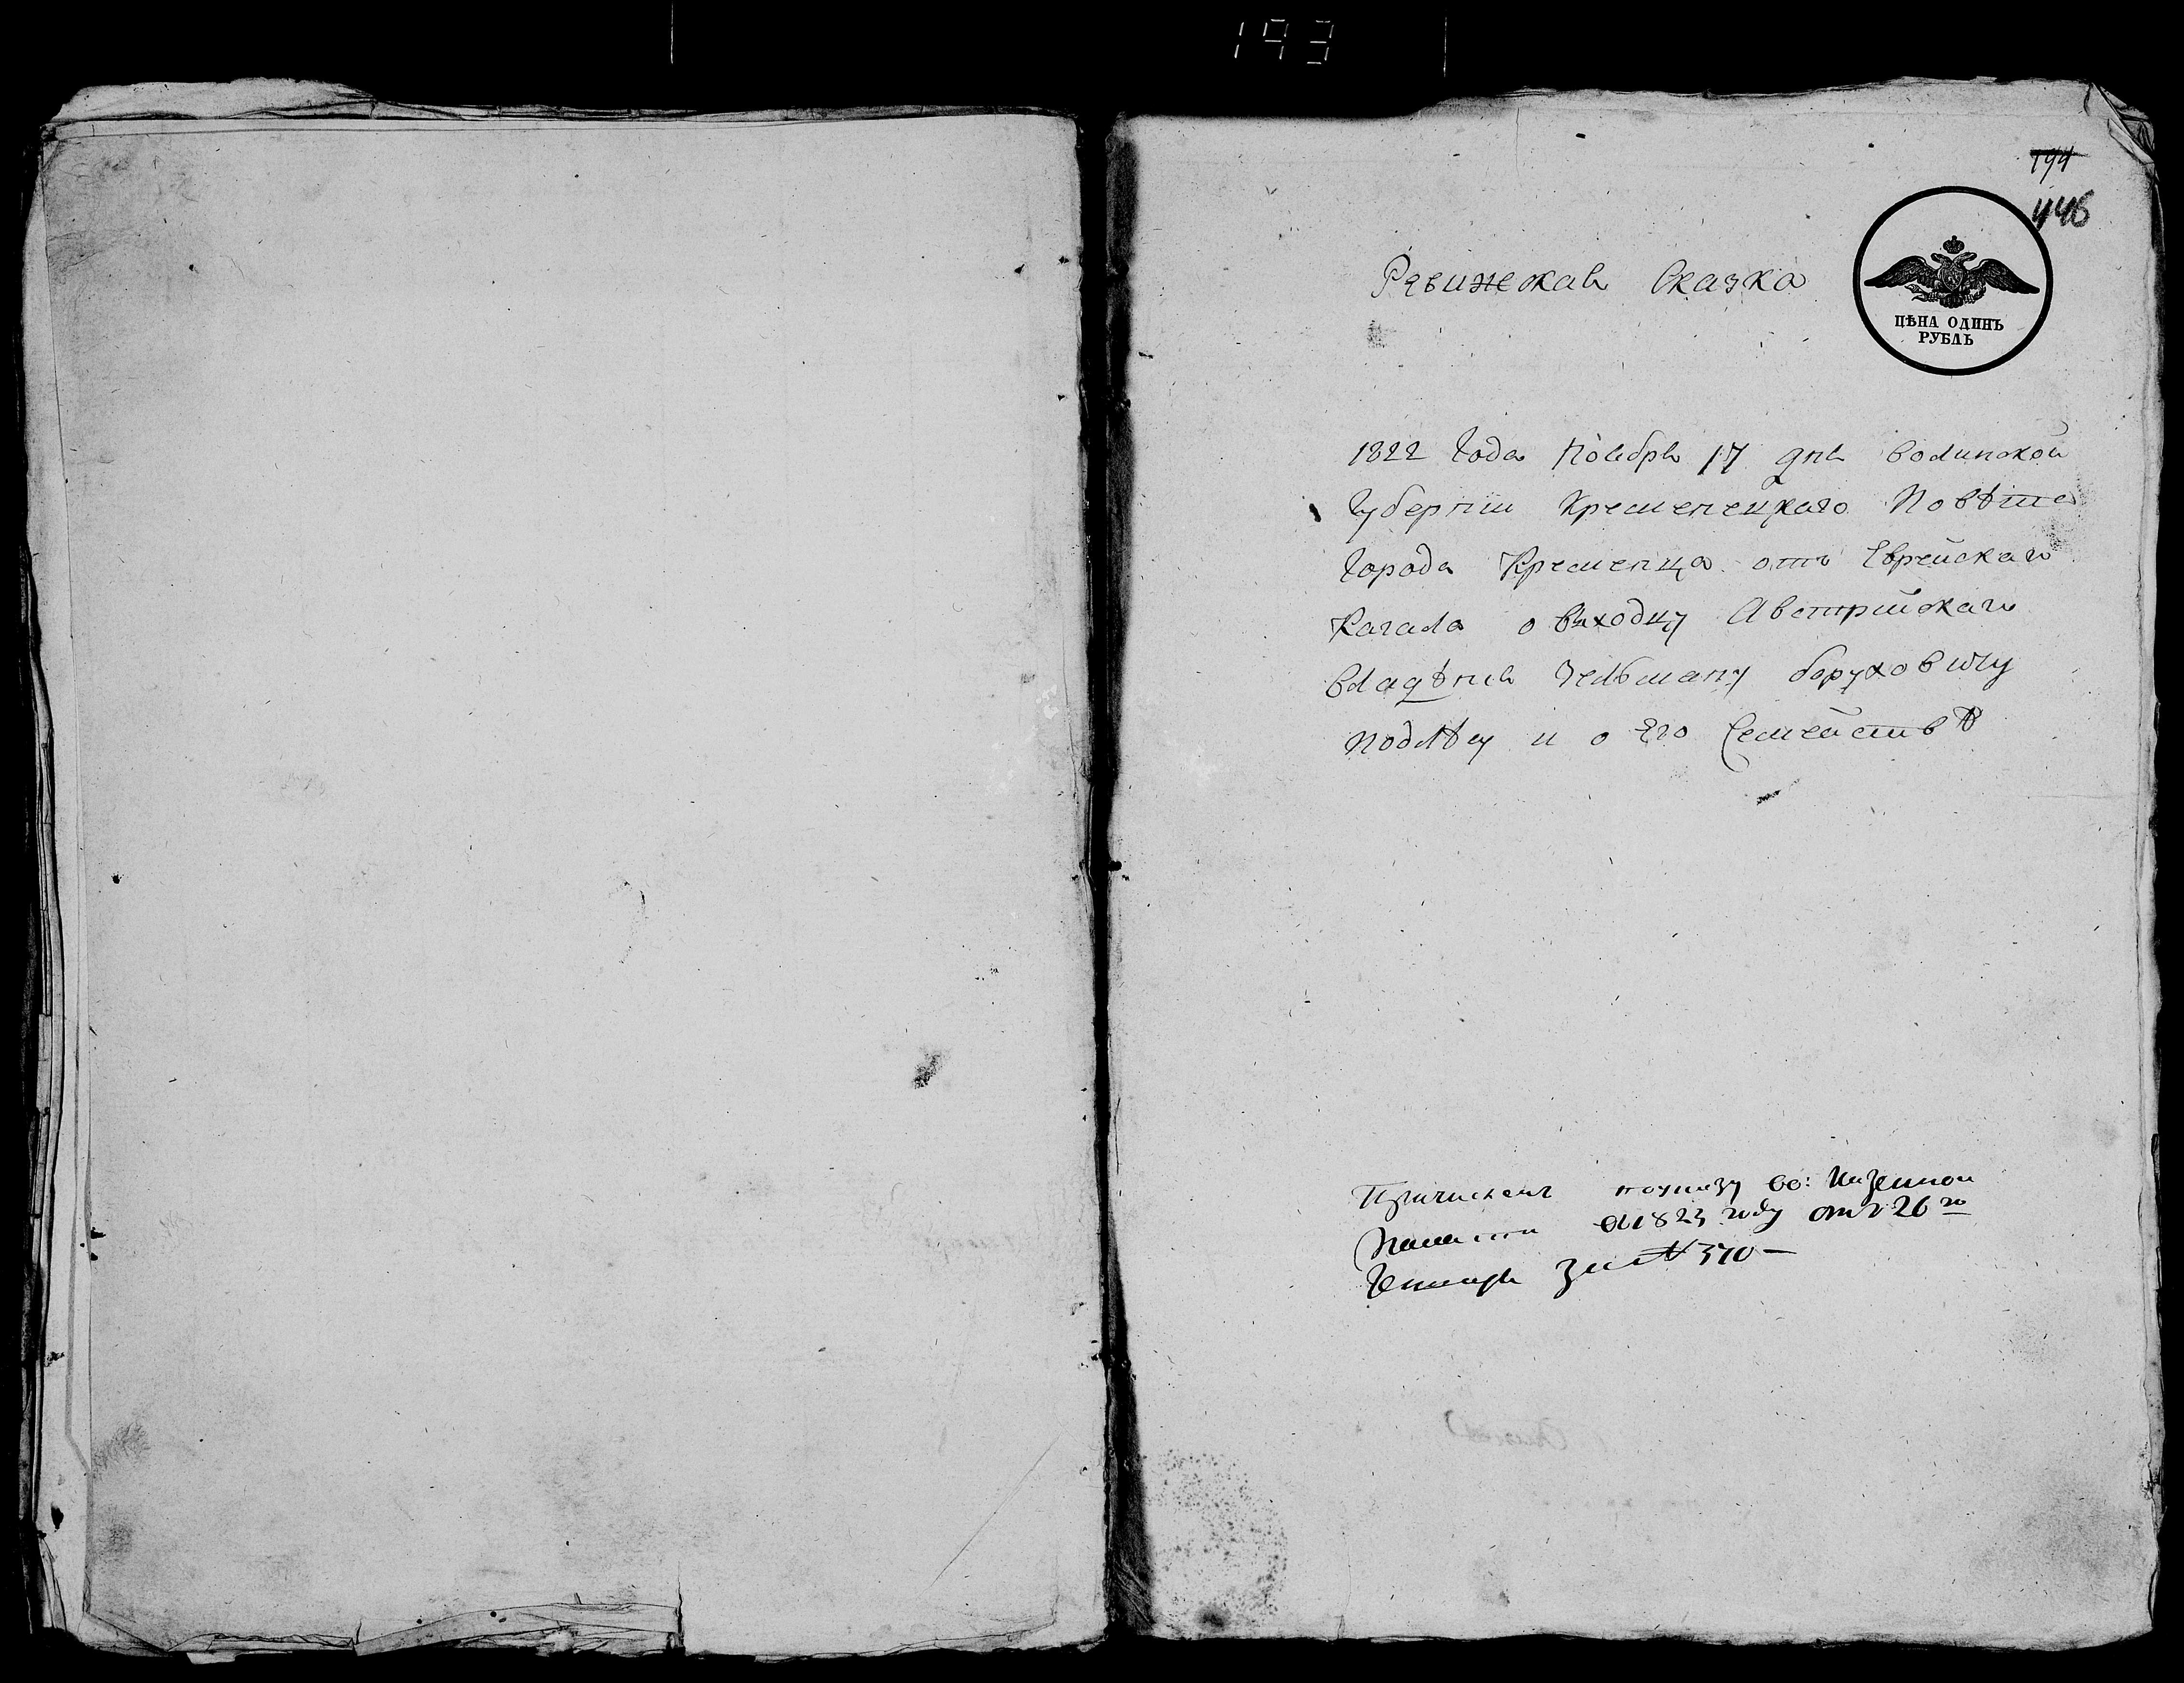 193
194
446
Ревижская Сказка
ЦѢНА ОДИНЪ
РУБЛЬ
1822 Года Ноября 17 дня Волинской
Губернии Кременецкаго Повѣта
Города Кременца отъ Еврейскаго
Кагала о выходцу Австрийскаго
владѣния Зельману Боруховичу
и о Его Семействѣ
Причислен по указу Во: Казенной
Палати 1823 году отъ 26го
Генваря за № 370 —